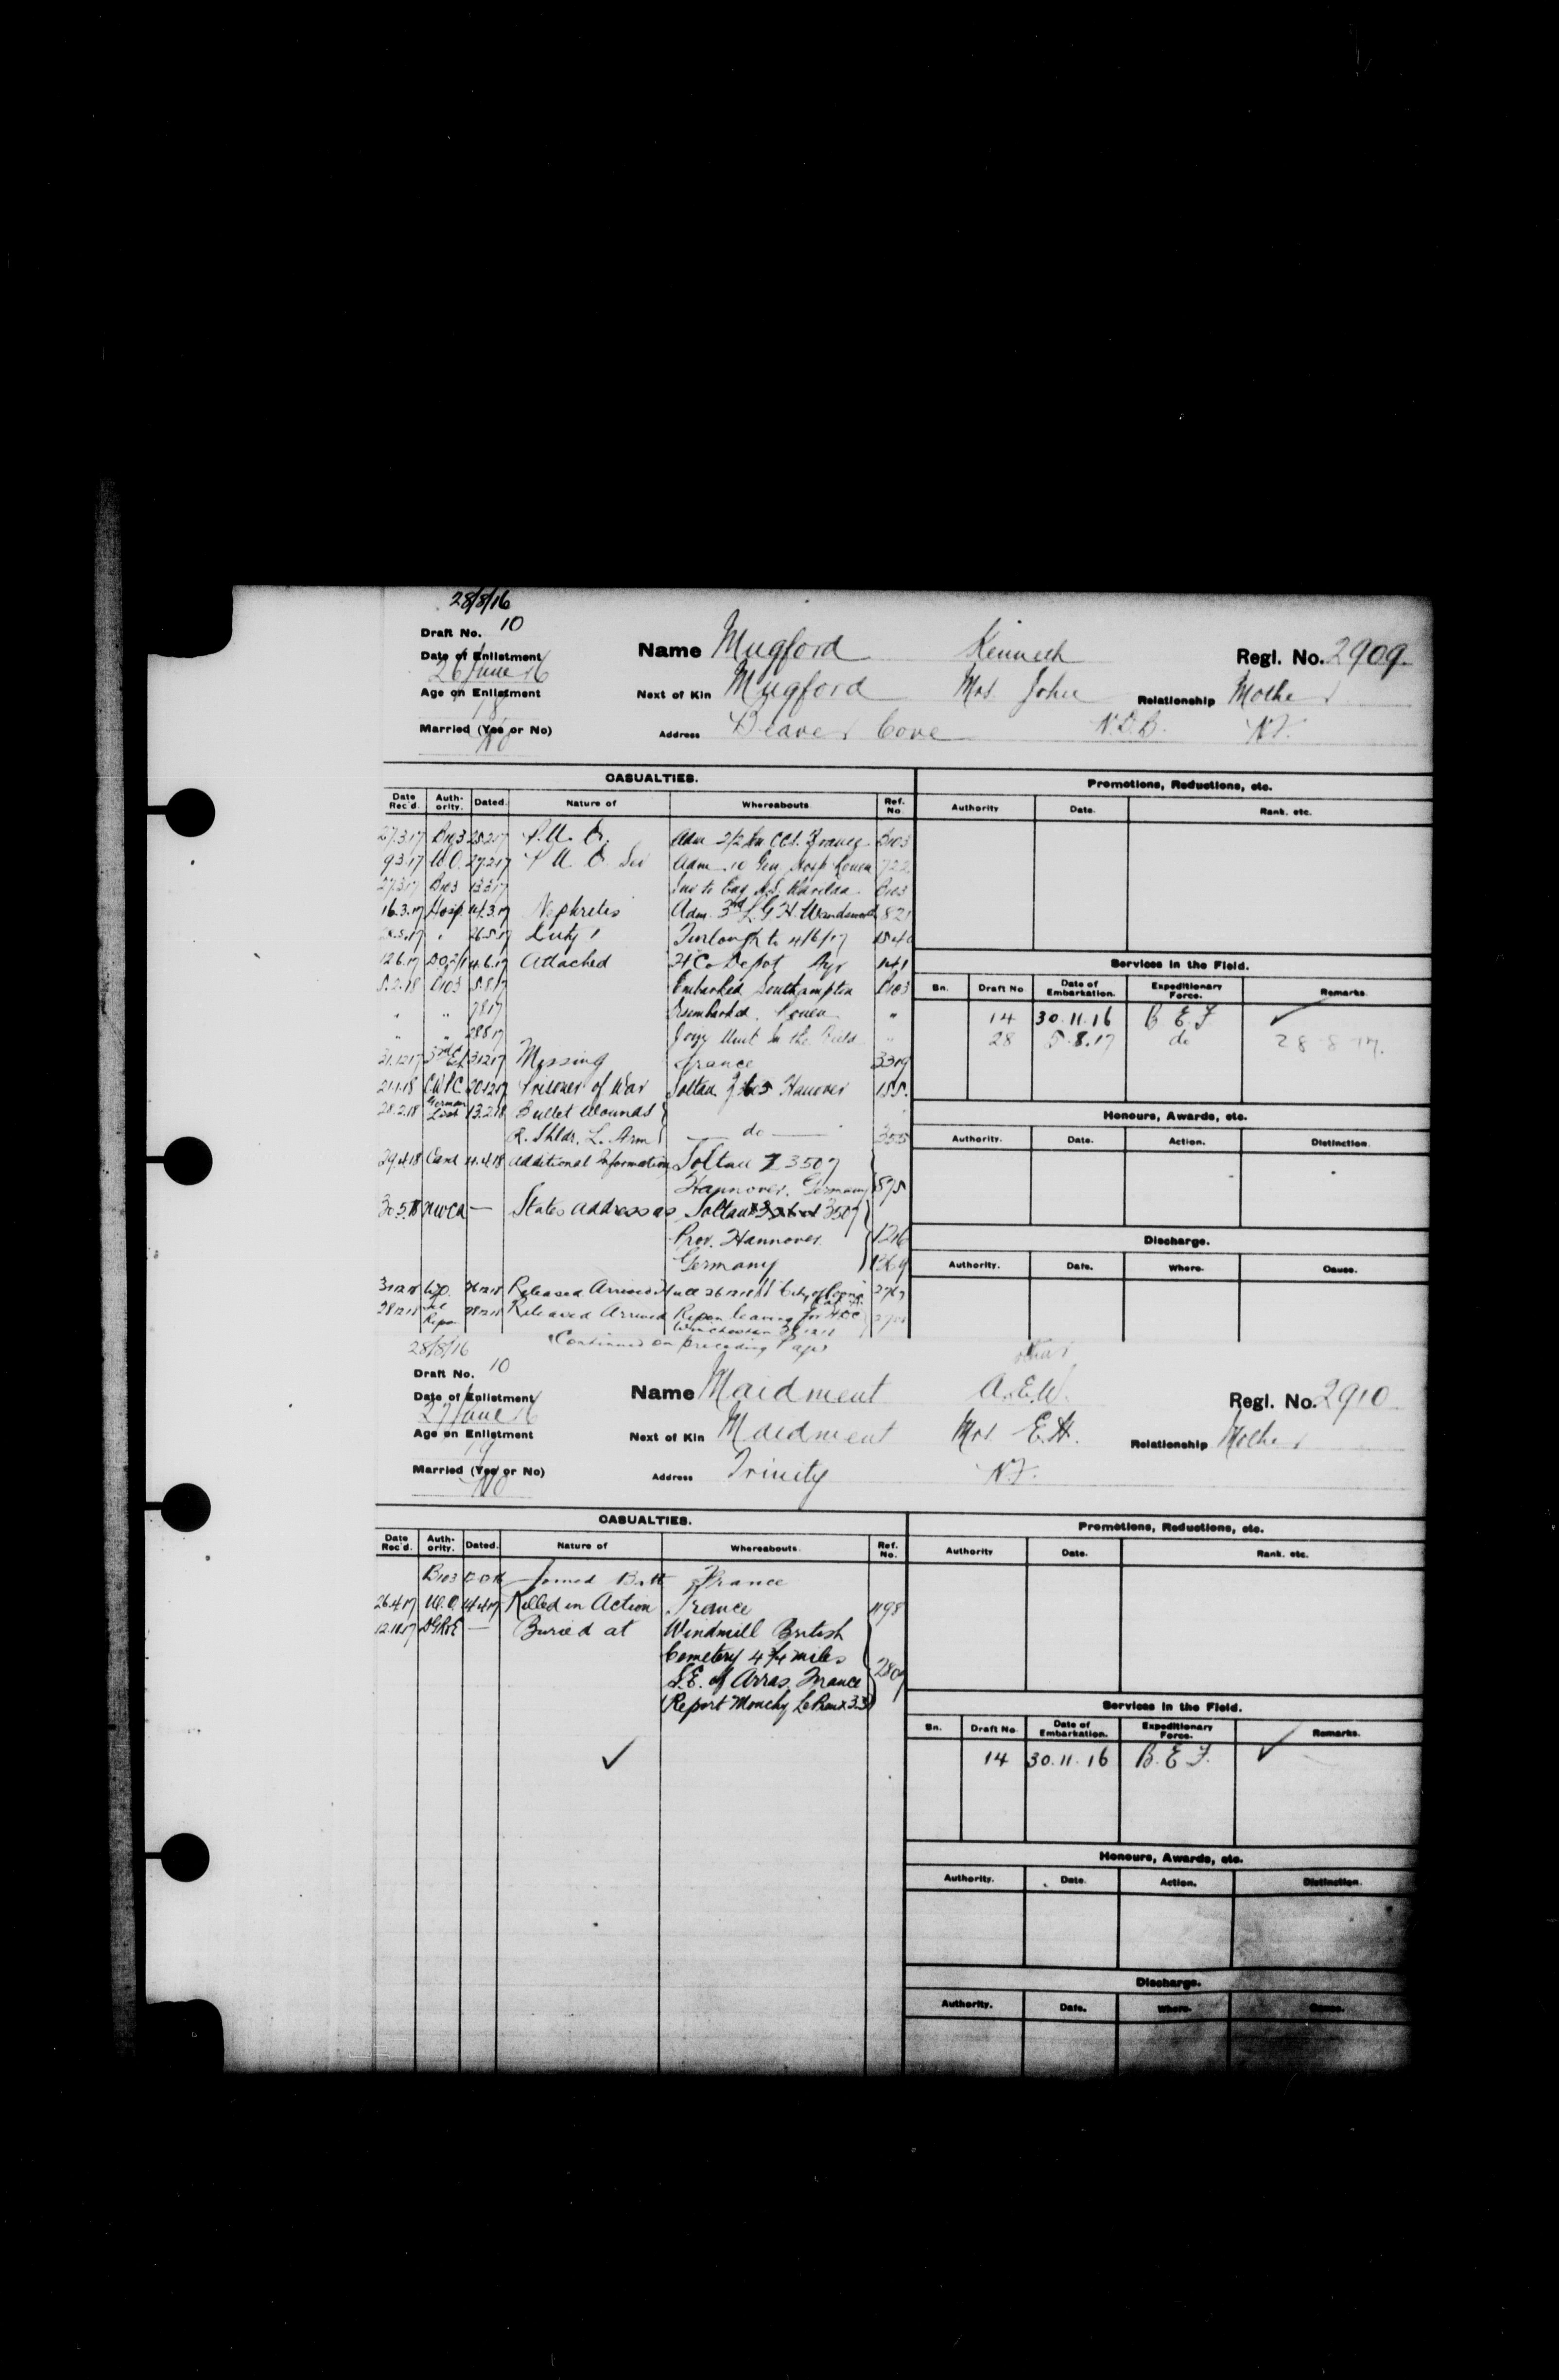 28/8/16
Draft No. 10
Date of Enlistment
26 June 16
Age on Enlistment
18
Married (Yes or No)
No
Name Mugford Kenneth Regl. No. 2909.
Next of Kin Mugford Mrs. John Relationship Mother
Address Beaver Cove N.D.B. N.F.
CASUALTIES.
Date Rec'd. Auth-ority. Dated. Nature of Whereabouts Ref. No.
27.3.17 B103 25.2.17 P.U.O. Adm 2/2 Lon CCS. France B103
9.3.17 W.O. 27.2.17 P.U.O. Sev Adm 10 Gen Hosp Rouen 722
27.3.17 B103 13.3.17 Inv to Eng B103
16.3.17 Hosp. 14.3.17 Nephritis Adm. 3rd L.G.H. Wandsworth 821
26.5.17 Duty 1 Furlough to 4/6/17
12.6.17 4.6.17 Attached H Co Depot Ayr 141
5.2.18 B103 5.8.17 Embarked Southampton B103
" " 7.8.17 Disembarked. Rouen "
" " 28.8.17 Joins Unit In the Field "
21.12.17 3.12.17 Missing France 3309
21.1.18 20.12.17 Prisoner of War Soltau Hanover 155.
28.2.18 German List 13.2.18 Bullet Wounds
R. Shldr. L. Arm do 355
29.4.18 Card 4.4.18 Additional Information Soltau Z 3507
Hannover. Germany 875
30.5.18 — States address as Soltau 3507
Prov. Hannover. 1216
Germany
31.12.18 W.O. 26.12.18 Released Arrived Hull 26.12.18 2767
28.12.18 28.12.18 Released Arrived Ripon leaving for
Winchester
Continued on preceding Page
Promotions, Reductions, etc.
Authority Date. Rank. etc.
Services in the Field.
Bn. Draft No Date of Embarkation. Expeditionary Force. Remarks.
14 30.11.16 B.E.F ✓
28 5.8.17 do 28.8.17.
Honours, Awards, etc.
Authority. Date. Action. Distinction.
Discharge.
Authority. Date. Where. Cause.
28/8/16
Draft No. 10
Date of Enlistment
27 June 16
Age on Enlistment
19
Married (Yes or No)
No
Name Maidment A.E.W. Regl. No. 2910
Next of Kin Maidment Mrs. E.H. Relationship Mother
Address Trinity N.F.
CASUALTIES.
Date Rec'd. Auth-ority. Dated. Nature of Whereabouts. Ref. No.
B103 Joined Batt France
26.4.17 W.O. 14.4.17 Killed in Action France 1198
12.10.17 DGR&E — Buried at Windmill British
Cemetery 4 3/4 miles
S.E. of Arras, France 2809
(Report Monchy Le Preux 33)
✓
Promotions, Reductions, etc.
Authority Date. Rank. etc.
Services in the Field.
Bn. Draft No Date of Embarkation. Expeditionary Force. Remarks.
14 30.11.16 B.E.F. ✓
Honours, Awards, etc.
Authority. Date. Action. Distinction.
Discharge.
Authority. Date. Where. Cause.